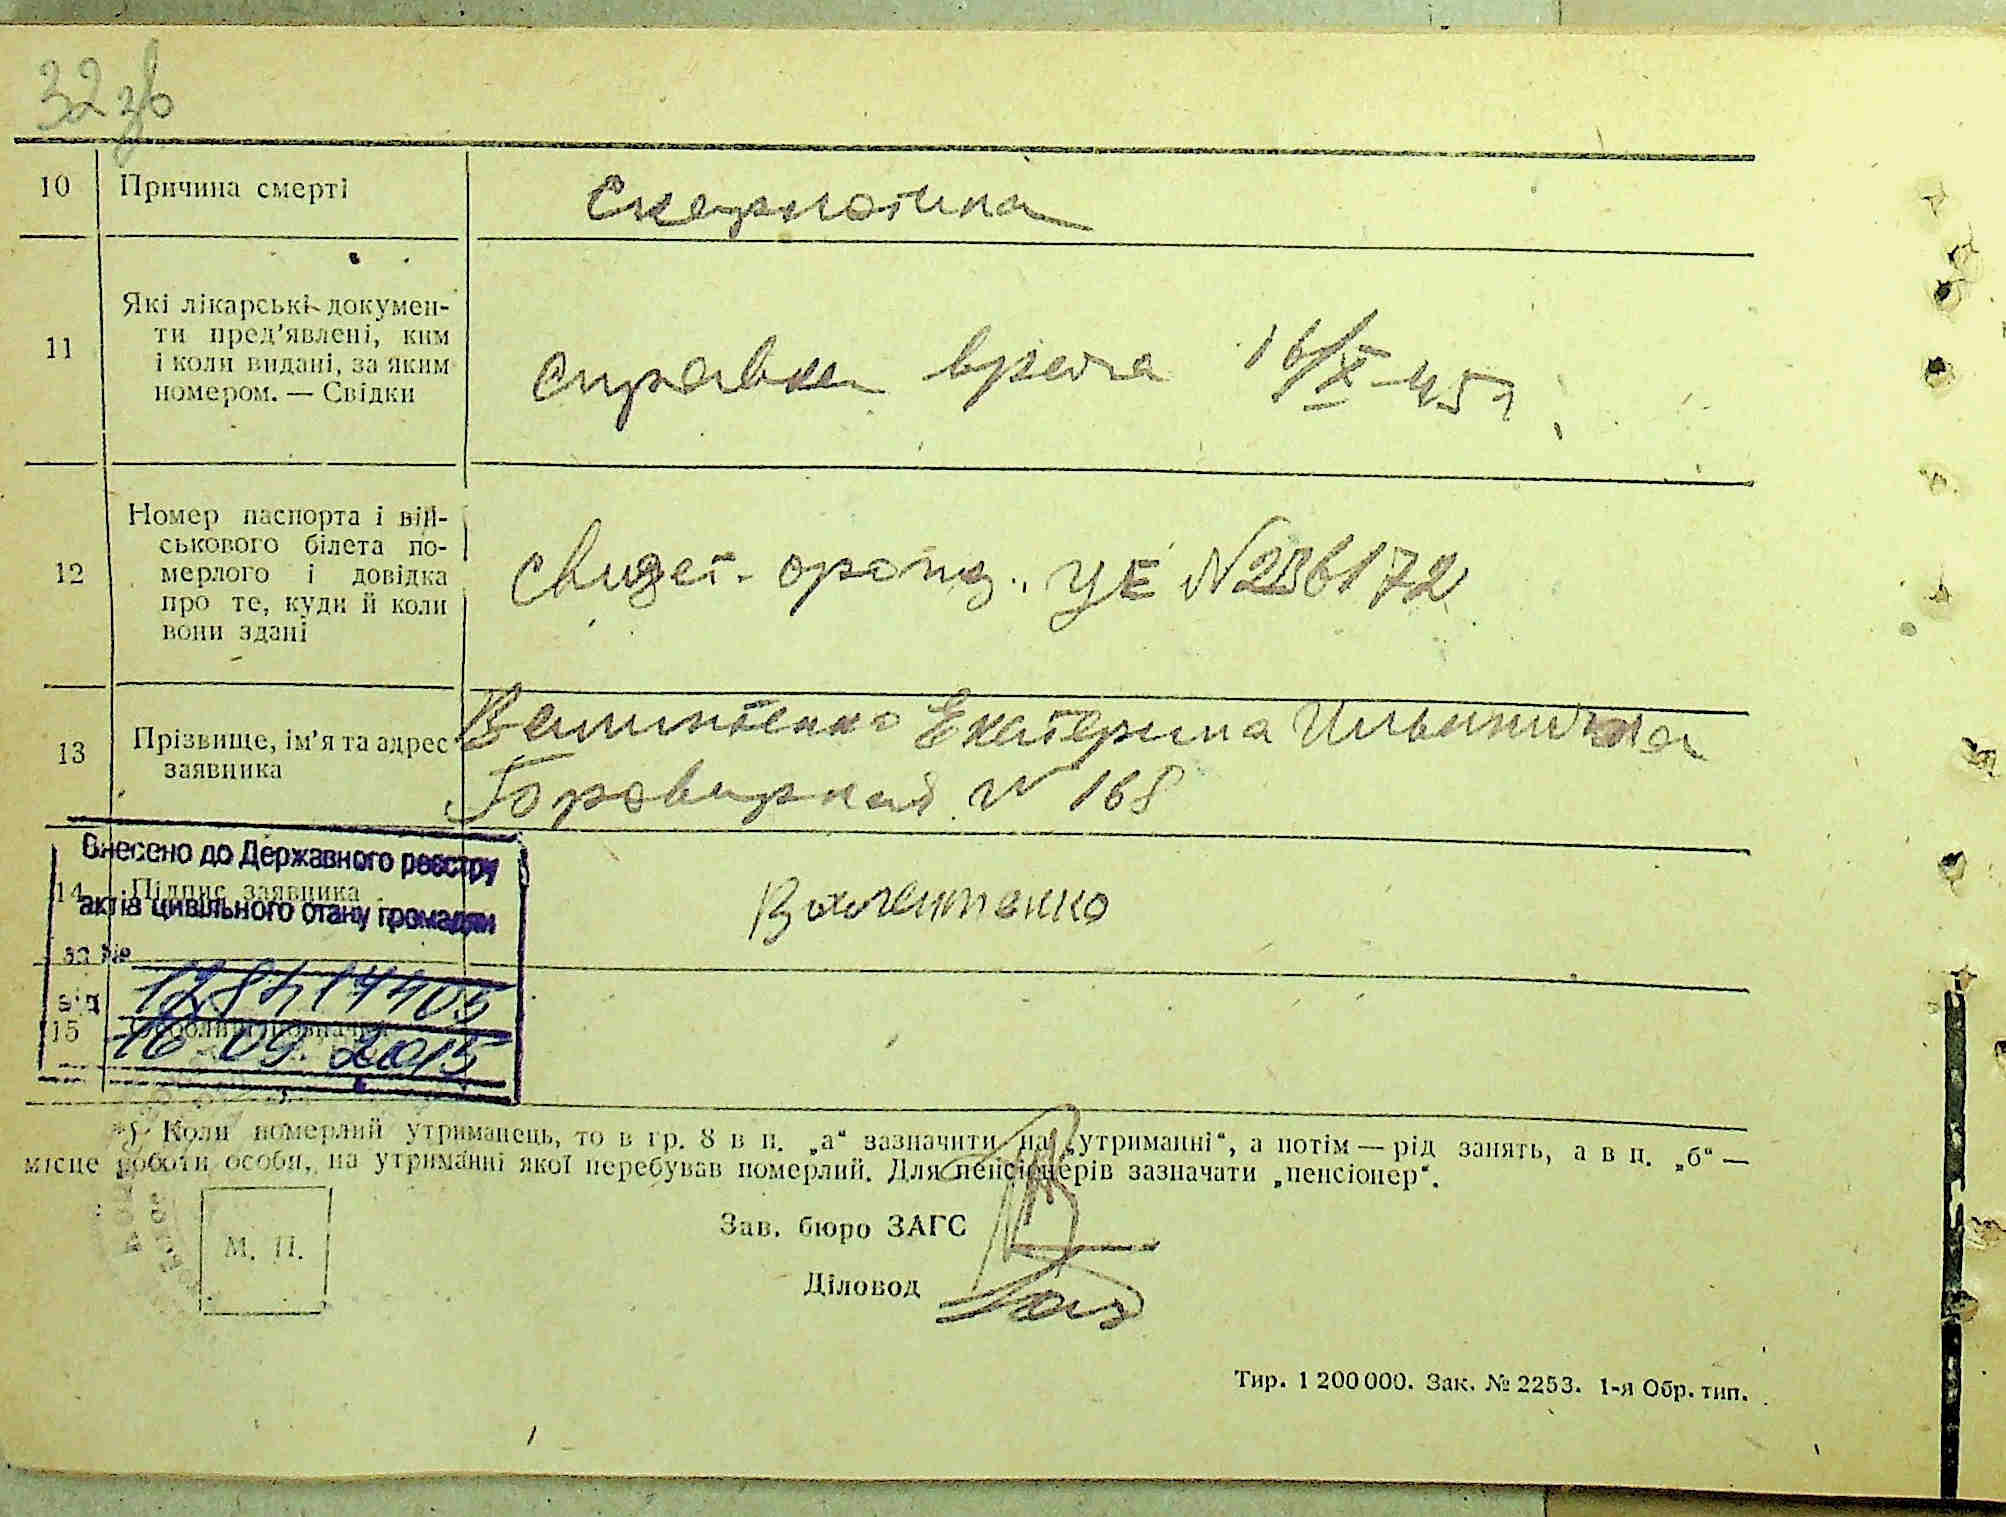 32 зв
10 Причина смерті
Скарлатина
11 Які лікарські докумен-
ти пред'явлені, ким
і коли видані, за яким
номером. — Свідки
справка врача 16/X-45г
12 Номер паспорта і вій-
ськового білета по-
мерлого і довідка
про те, куди й коли
вони здані
свидет. о рожд. УЕ N 236172
13 Прізвище, ім'я та адрес
заявника
Екатерина Ильинична
N 168
Внесено до Державного реєстру
14 Підпис заявника
актів цивільного стану громадян
за №
від
15 Особливі позначки
16 09. 2015
*) Коли померлий утриманець, то в гр. 8 в п. „а“ зазначити „на утриманні“, а потім — рід занять, а в п. „б“ —
місце роботи особи, на утриманні якої перебував померлий. Для пенсіонерів зазначати „пенсіонер“.
Зав. бюро ЗАГС
М. П.
Діловод
Тир. 1 200 000. Зак. № 2253. 1-я Обр. тип.